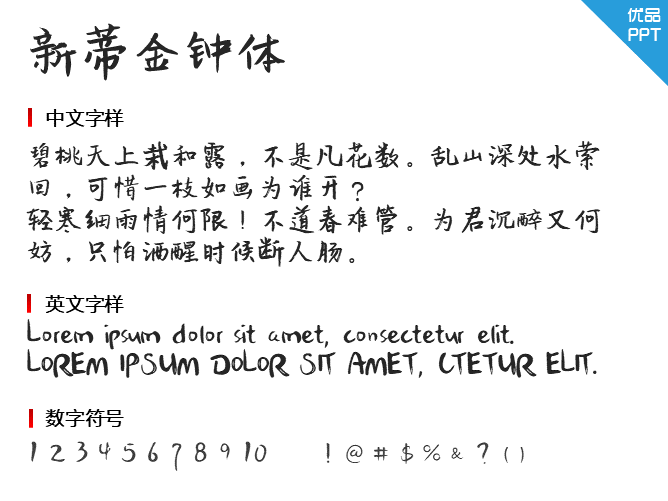 优品
PPT
新蒂金钟体
中文字样
碧桃天上栽和露，不是凡花数。乱山深处水萦
回，可惜一枝如画为谁开？
轻寒细雨情何限！不道春难管。为君沉醉又何
妨，只怕酒醒时候断人肠。
英文字样
Lorem ipsum dolor sit amet, consectetur elit.
LOREM IPSUM DOLOR SIT AMET, CTETUR ELIT.
数字符号
1 2 3 4 5 6 7 8 9 10 ! @ # $ % & ? ( )